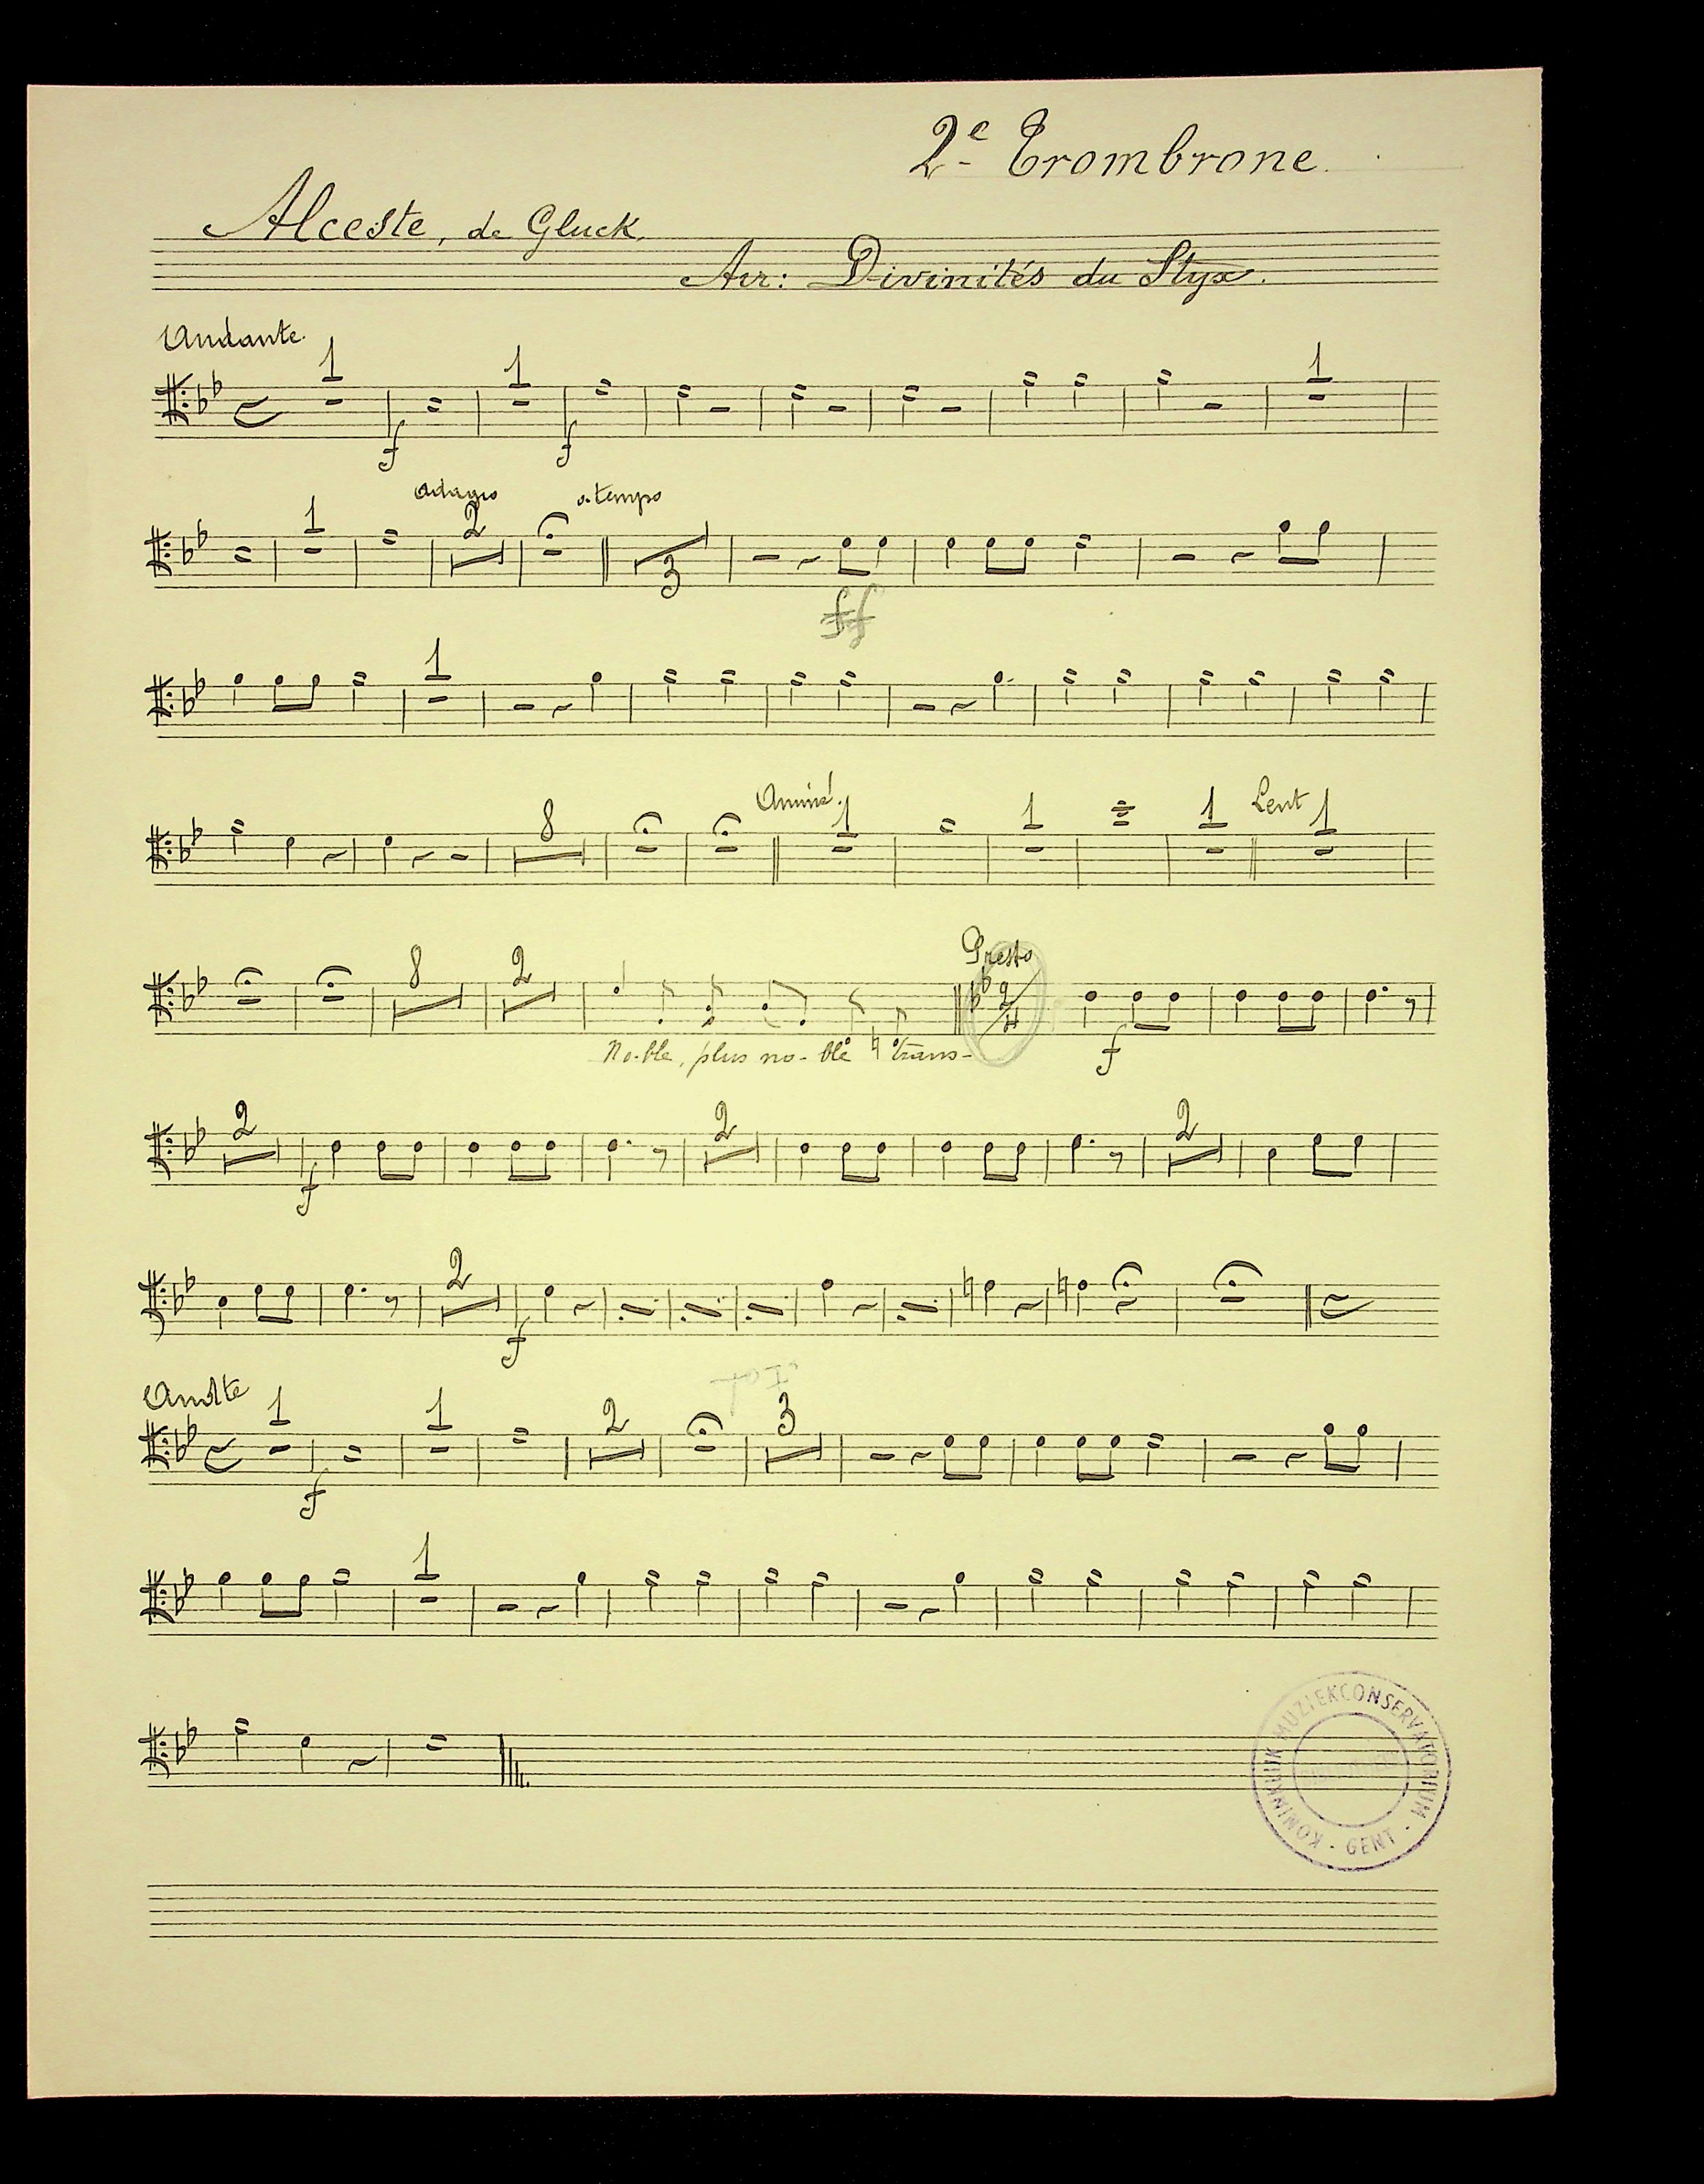 2e Trombrone.
Alceste, de Gluck.
Air: Divinités du Styx.
Andante.
1 1 1
f f
adagio a tempo
1 2
3
ff
1
Animé. Lent
8 1 1 1 1
Presto
8 2 2/4
No-ble, plus no-ble trans-
f
2 2 2
f
2
f
Andte
1 1 2 3
f
1
KONINKLIJK MUZIEKCONSERVATORIUM - GENT -